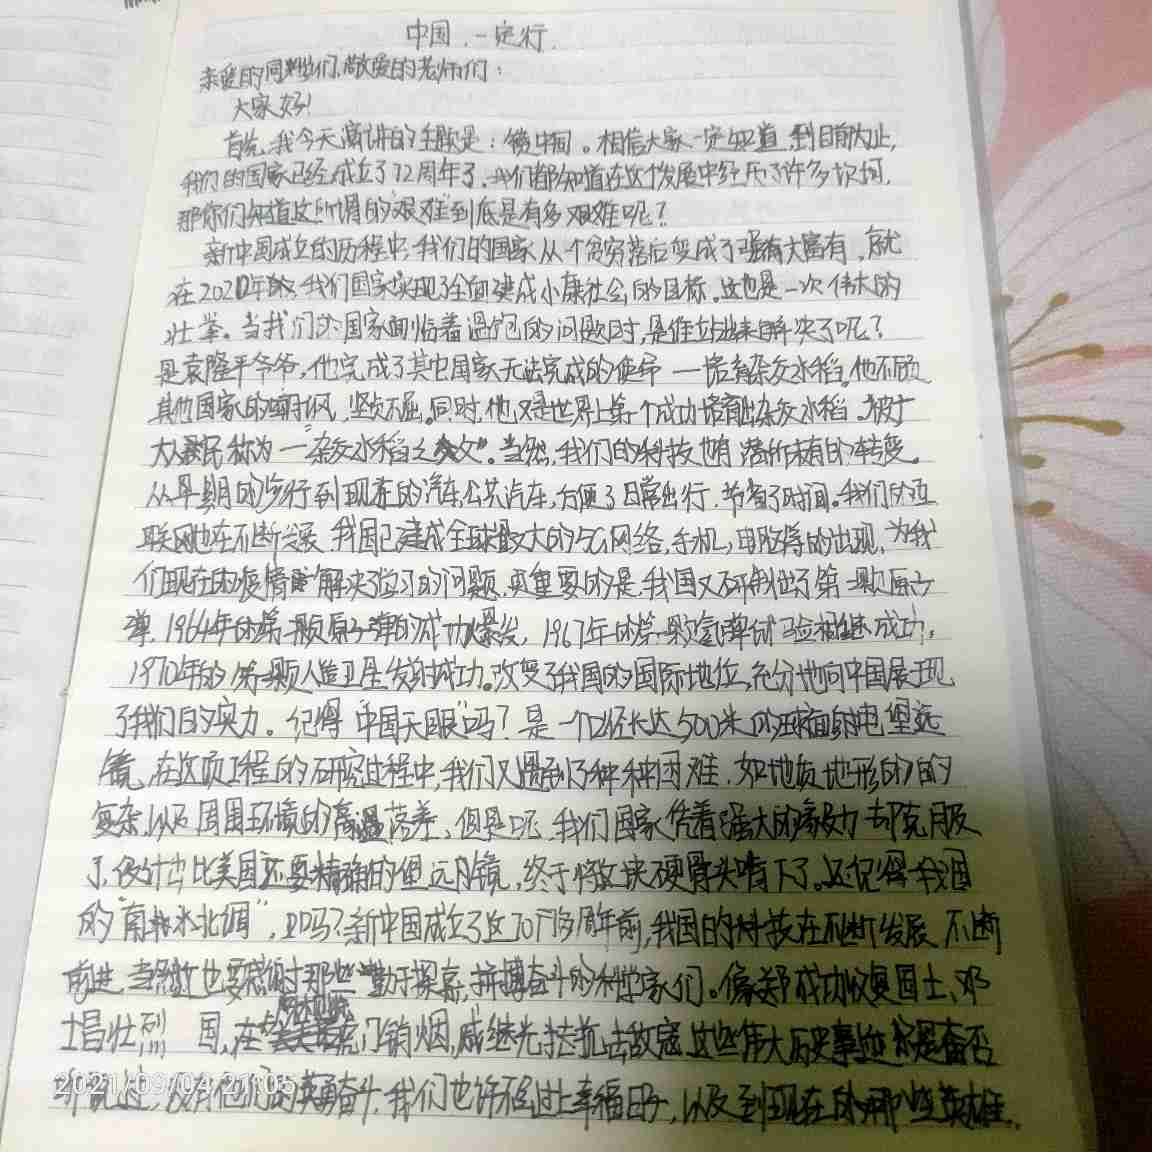 中国，一定行。
亲爱的同学们，敬爱的老师们：
大家好！
首先，我今天演讲的主题是：镜中国。相信大家一定知道，到目前为止，
我们的国家已经成立了72周年了，我们都知道在这个发展中经历了许多坎坷，
那你们知道这所谓的“艰难”到底是有多艰难呢？
新中国成立的历程中，我们的国家从一个贫穷落后变成了强有大富有，就
在2021年时，我们国家实现了全面建成小康社会的目标。这也是一次伟大的
壮举。当我们的国家面临着温饱的问题时，是谁站出来解决了呢？
是袁隆平爷爷，他完成了其它国家无法完成的使命——培育杂交水稻。他不顾
其他国家的嘲讽，坚贞不屈。同时，他又是世界上第一个成功培育出杂交水稻。被广
大人民称为一“杂交水稻之父”。当然，我们的科技也有着所未有的转变。
从早期的步行到现在的汽车，公共汽车，方便了日常出行，节省了时间。我们的互
联网也在不断发展，我国已建成全球最大的5G网络，手机，电脑等的出现，为我
们现在的疫情时解决了学习的问题，更重要的是，我国又研制出了第一颗原子
弹，1964年的第一颗原子弹的成功爆发，1967年的第一颗氢弹试验相继成功，
1970年的第一颗人造卫星发射成功。改变了我国的国际地位，充分地向中国展现
了我们的实力。记得“中国天眼”吗？是一个口径长达500米的球面射电望远
镜，在这项工程的研究过程中，我们又遇到了种种困难，如地质地形的的
复杂，以及周围环境的高温落差，但是呢，我们国家凭着强大的毅力却克服
了，设计出比美国还要精确的望远目镜，终于将这块硬骨头啃下了。还记得我国
的“南水北调”，吗？新中国成立了这70多周年前，我国的科技在不断发展，不断
前进，当然这也要感谢那些勤于探索，拼搏奋斗的科学家们。像郑成功收复国土，邓
士昌壮烈 国，在虎门销烟，戚继光抵抗击敌寇，这些伟大历史事迹
没有他们的英勇奋斗，我们也许不会过上幸福日子，以及到现在的那些英雄。
2021/09/04 21:05